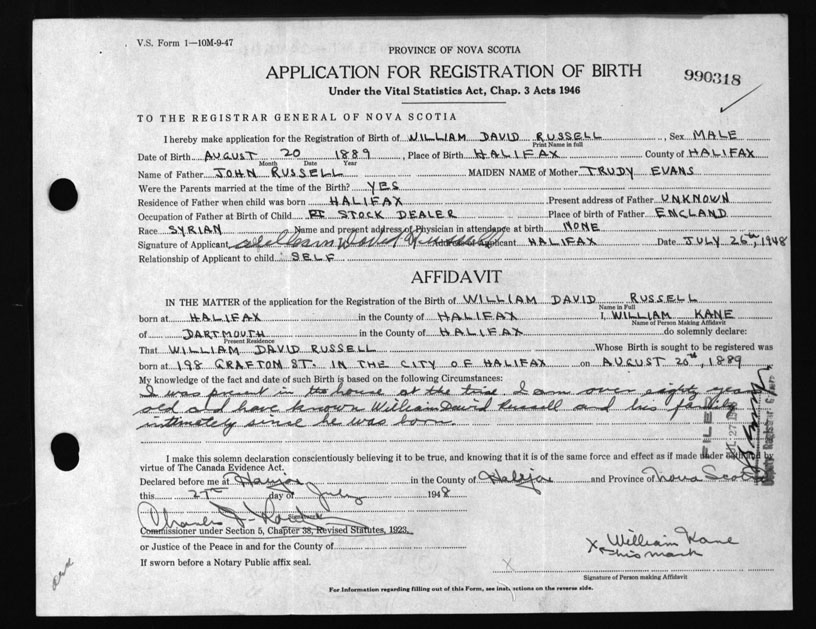 V.S. Form 1—10M-9-47
PROVINCE OF NOVA SCOTIA
APPLICATION FOR REGISTRATION OF BIRTH
990318
Under the Vital Statistics Act, Chap. 3 Acts 1946
TO THE REGISTRAR GENERAL OF NOVA SCOTIA
I hereby make application for the Registration of Birth of WILLIAM DAVID RUSSELL, Sex MALE
Print Name in full
Date of Birth AUGUST 20 1889, Place of Birth HALIFAX County of HALIFAX
Month Date Year
Name of Father JOHN RUSSELL MAIDEN NAME of Mother TRUDY EVANS
Were the Parents married at the time of the Birth? YES
Residence of Father when child was born HALIFAX Present address of Father UNKNOWN
Occupation of Father at Birth of Child STOCK DEALER Place of birth of Father ENGLAND
Race SYRIAN Name and present address of Physician in attendance at birth NONE
Signature of Applicant William David Russell Applicant HALIFAX Date JULY 26th, 1948
Relationship of Applicant to child SELF
AFFIDAVIT
IN THE MATTER of the application for the Registration of the Birth of WILLIAM DAVID RUSSELL
Name in Full
born at HALIFAX in the County of HALIFAX I, WILLIAM KANE
Name of Person Making Affidavit
of DARTMOUTH in the County of HALIFAX do solemnly declare:
Present Residence
That WILLIAM DAVID RUSSELL Whose Birth is sought to be registered was
born at 198 GRAFTON ST. IN THE CITY OF HALIFAX on AUGUST 20th, 1889
My knowledge of the fact and date of such Birth is based on the following Circumstances:
I was present in the house at the time. I am over eighty years
old and have known William David Russell and his family
intimately since he was born.
FILED
I make this solemn declaration conscientiously believing it to be true, and knowing that it is of the same force and effect as if made under oath and by
virtue of The Canada Evidence Act.
Declared before me at Halifax in the County of Halifax and Province of Nova Scotia
this 27th day of July 1948
Charles J.
Commissioner under Section 5, Chapter 38, Revised Statutes, 1923.
or Justice of the Peace in and for the County of
If sworn before a Notary Public affix seal.
X William Kane
his mark
X
Signature of Person making Affidavit
For Information regarding filling out of this Form, see instructions on the reverse side.